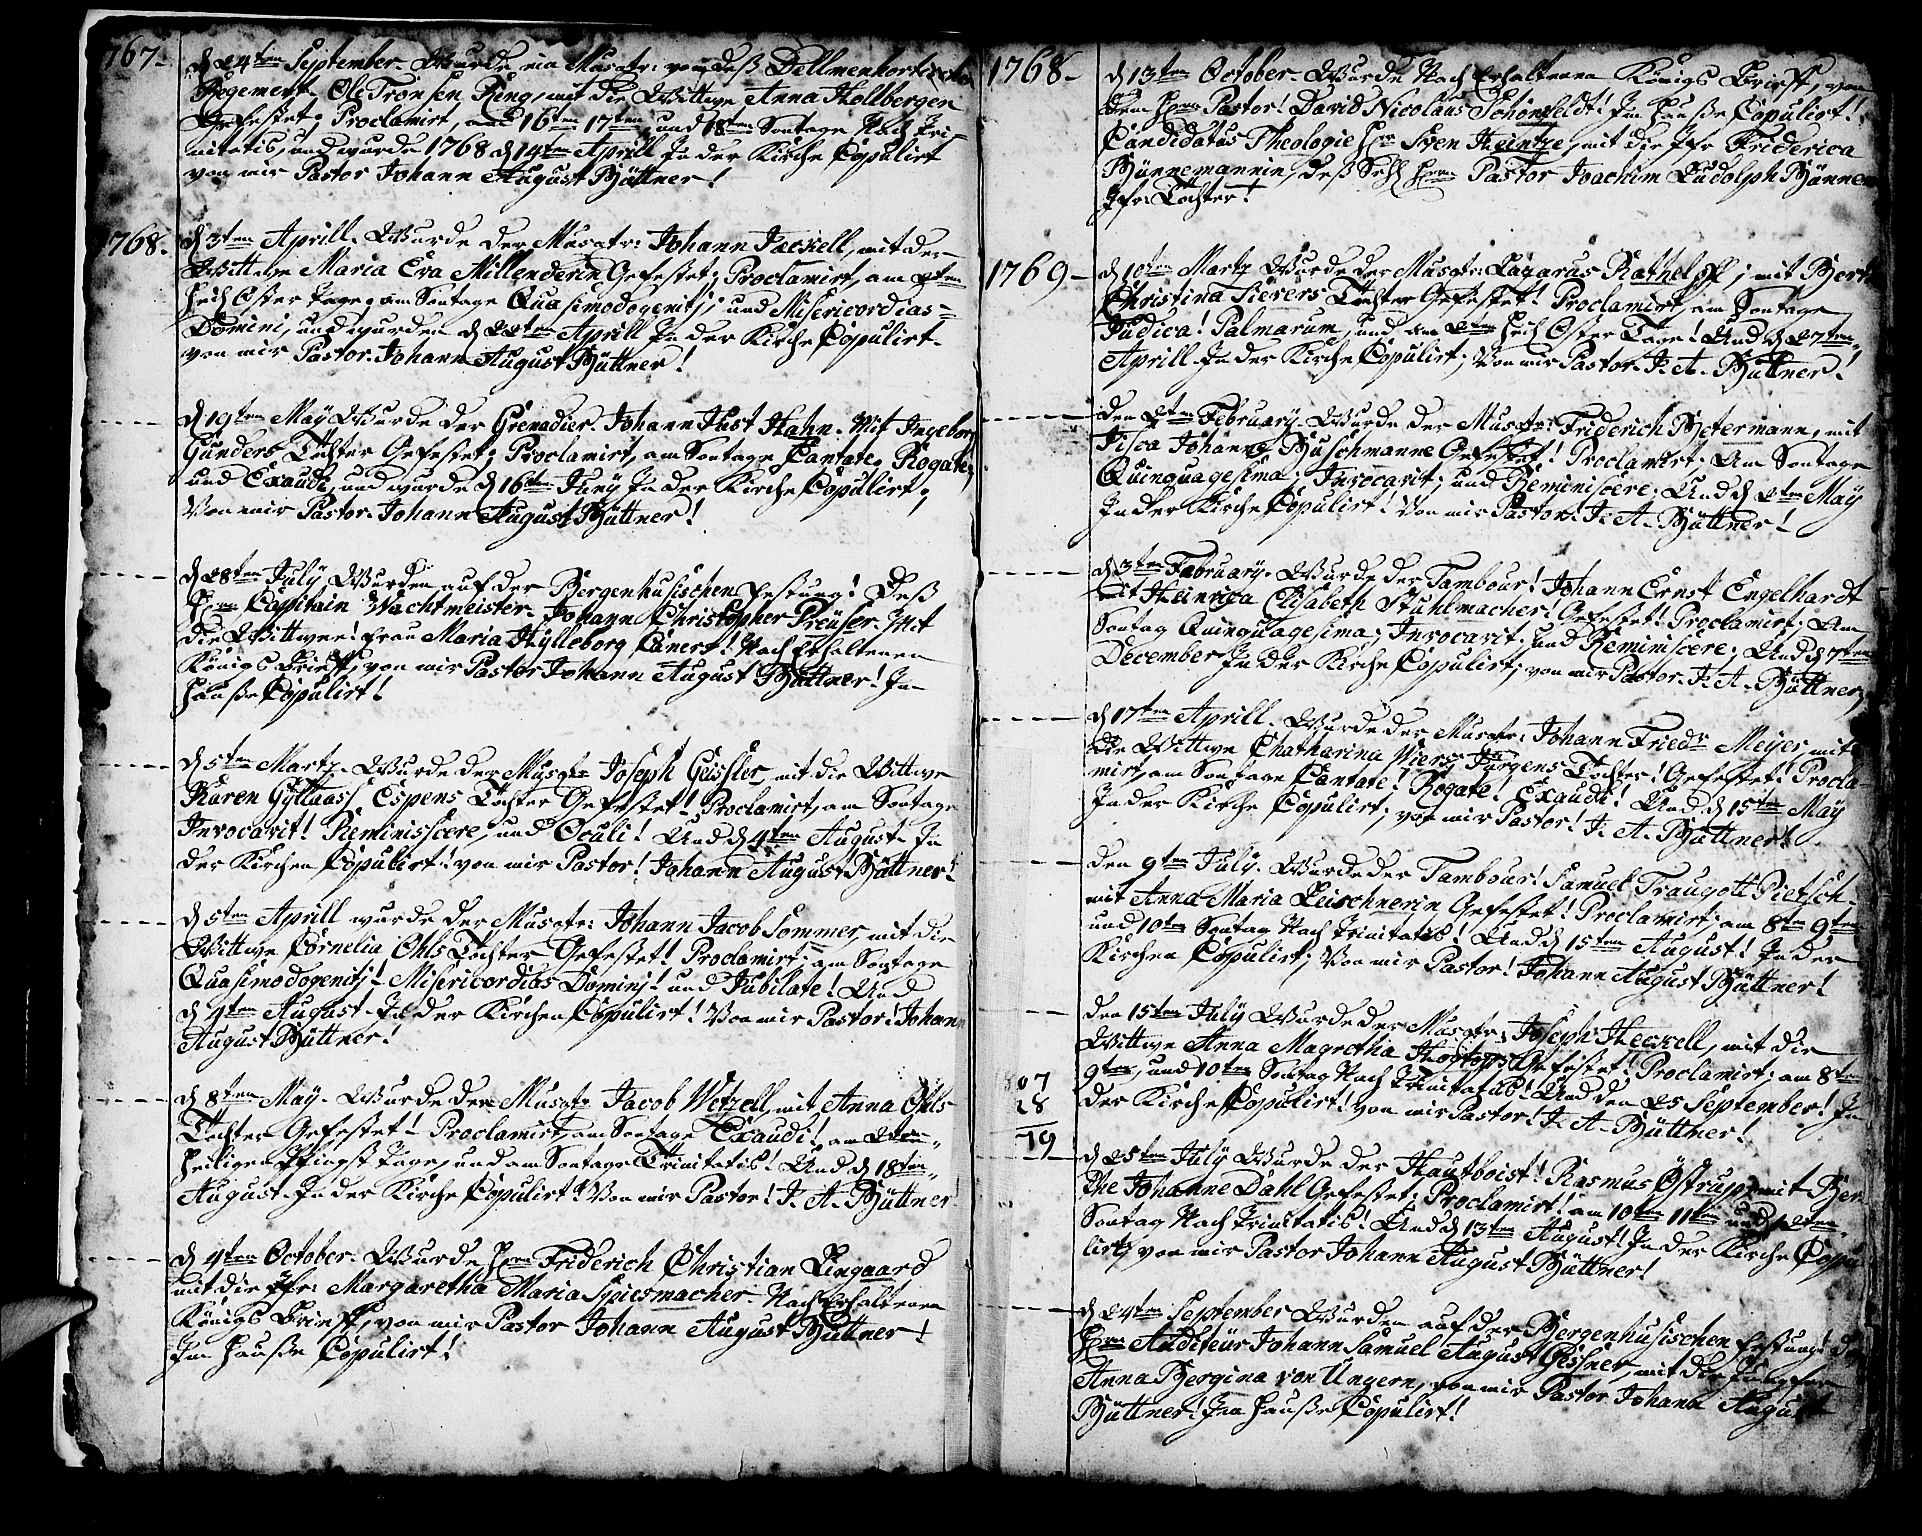 767-
d 24ten September. Wurde ein Musqtr: von deß Dellmenhorstischen
Regement. Ole Tronsen Ring, mit die Wittwe Anna Hollbergen
Gefestet; Proclamirt, am 16ten 17ten und 18ten Sontage Nach Tri-
nitatis, und wurde 1768 d 14ten Aprill In der Kirche Copulirt
von mir Pastor Johann August Büttner!
768.
d 3ten Aprill. Wurde der Musqtr: Johann Jackell, mit der
Wittwe Maria Eva Millenderin Gefestet; Proclamirt, am 2ten
heil Oster Tage, am Sontage Quasimodogenitj; und Misericordias=
Domini, und wurden d 22ten Aprill In der Kirche Copulirt.
von mir Pastor Johann August Büttner!
d 19ten May Wurde der Grenadier. Johann Just Hahn. Mit Ingeborg
Gunders Tochter Gefestet; Proclamirt, am Sontage Cantate, Rogate,
und Exaudi, und wurde d 16ten Juny In der Kirche Copulirt,
Von mir Pastor Johann August Büttner!
d 28ten July Wurden auf der Bergenhusischen Festung! Deß
Hern Capitain Wachtmeister Johann Christopher Preüser. Mit
die Wittwe! Frau Maria Hylleborg Canert! Nach Erhaltenen
Königs Brieff, von mir Pastor Johann August Büttner! In
Hauße Copulirt!
d 5ten Martz. Wurde der Musqtr Joseph Geissler, mit die Wittwe
Karen Gyllaass Espens Tochter Gefestet! Proclamirt, am Sontage
Invocavit! Reminisscere, und Oculi! Und d 4ten August. In
der Kirchen Copulirt! von mir Pastor! Johann August Büttner!
d 5ten Aprill wurde der Musqtr: Johann Jacob Sommer, mit die
Wittwe Cornelia Ohls Tochter Gefestet! Proclamirt, am Sontage
Quasimodogenitj! Misericordias Dominj! und Jubilate! Und
d 4ten August. In der Kirchen Copulirt! Von mir Pastor! Johann
August Büttner!
d 8ten May. Wurde der Musqtr Jacob Wetzell, mit Anna Ohls
Tochter Gefestet! Proclamirt, am Sontage Exaudi! am 2ten
Heiligen Pfingst Tage, und am Sontage Trinitatis! Und d 18ten
August. In der Kirche Copulirt! Von mir Pastor! J. A. Büttner
d 4ten October. Wurde Hern Friderich Christian Lingaard
mit die Jfr: Margaretha Maria Spiesmacher. Nach Erhaltenen
Königs Brieff, von mir Pastor Johann August Büttner!
Im Hauße Copulirt!
1768-
d 13ten October. Wurde Nach Erhaltenen Königs Brieff, von
dem Hern Pastor! David Nicolaus Schönfeldt! Im Hauße Copulirt!
Candidatus Theologie Hr Sven Heintze, mit die Jfr Friderica
Bünnemannin, deß Sehl Hern Pastor Joachim Ludolph Bünnem
Jfr: Tochter!
1769-
d 10ten Martz Wurde der Musqtr: Lazarus Rathel; mit Berte
Christina Sievers Tochter Gefestet! Proclamirt, am Sontage
Judica! Palmarum, und am 2ten Heil Oster Tage! Und d 27ten
Aprill. In der Kirche Copulirt; Von mir Pastor. J. A. Büttner!
den 2ten February. Wurde der Musqtr: Friderich Betermann, mit
Fisca Johanne Buschmanne Gefestet! Proclamirt; Am Sontage
Quinquagesima; Invocavit; und Reminiscere; Und d 2ten May
In der Kirche Copulirt! Von mir Pastor. J. A. Büttner!
d 3ten February. Wurde der Tambour! Johann Ernst Engelhardt
mit Heinrica Elisabeth Stuhlmacher! Gefestet! Proclamirt; Am
Sontag Quinquagesima; Invocavit. und Reminiscere; Und d 7ten
December In der Kirche Copulirt; von mir Pastor. J. A. Büttner,
d 17ten Aprill. Wurde der Musqtr: Johann Friedr Meyer, mit
die Wittwe Chatharina Niers Jürgens Tochter! Gefestet! Procla-
mirt, am Sontage Cantate! Rogate! Exaudi! Und d 15ten May
In der Kirche Copulirt; von mir Pastor! J. A. Büttner!
den 9ten July. Wurde der Tambour! Samuel Traugott Pietsch.
mit Anna Maria Leischnerin Gefestet! Proclamirt; am 8ten 9ten
und 10ten Sontag Nach Trinitatis! Und d 15ten August! In der
Kirchen Copulirt; Von mir Pastor! Johann August Büttner!
den 15ten July Wurde der Musqtr: Joseph Heckell, mit die
Wittwe Anna Magretha Gefestet! Proclamirt; am 8ten
9ten, und 10ten Sontag Nach Trinitatis! Und den 25 September! In
der Kirche Copulirt! von mir Pastor! J. A. Büttner!
1807
28
79
d 25ten July Wurde der Hautboist! Rasmus Östrup, mit Ber
the Johanne Dahl Gefestet; Proclamirt! am 10ten 11ten und 12ten
Sontag Nach Trinitatis! Und d 13ten August! In der Kirche Copu-
lirt, von mir Pastor Johann August Büttner!
d 24ten September Wurden auf der Bergenhusischen Festung! Der
Hern Auditeür Johann Samuel August Gessner, mit die Jungfer
Anna Bergina von Ungern, von mir Pastor Johann August
Büttner! Im Hauße Copulirt!